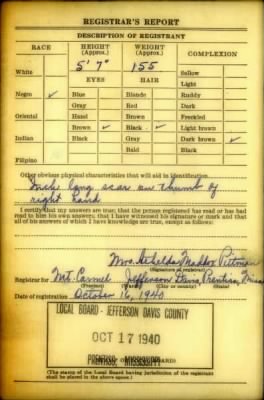 REGISTRAR'S REPORT
DESCRIPTION OF REGISTRANT
RACE HEIGHT (Approx.) WEIGHT (Approx.) COMPLEXION
White 5' 7" 155 Sallow
EYES HAIR Light
Negro ✓ Blue Blonde Ruddy
Gray Red Dark
Oriental Hazel Brown Freckled
Brown ✓ Black ✓ Light brown
Indian Black Gray Dark brown ✓
Bald Black
Filipino
Other obvious physical characteristics that will aid in identification
long scar on thumb of
right hand
I certify that my answers are true; that the person registered has read or has had
read to him his own answers; that I have witnessed his signature or mark and that
all of his answers of which I have knowledge are true, except as follows:
Mrs. Maddox Pittman
(Signature of registrar)
Registrar for Mt. Carmel Jefferson Davis, Prentiss, Miss.
(Precinct) (Ward) (City or county) (State)
Date of registration October 16, 1940
LOCAL BOARD - JEFFERSON DAVIS COUNTY
OCT 17 1940
PRENTISS, MISSISSIPPI
(The stamp of the Local Board having jurisdiction of the registrant
shall be placed in the above space.)